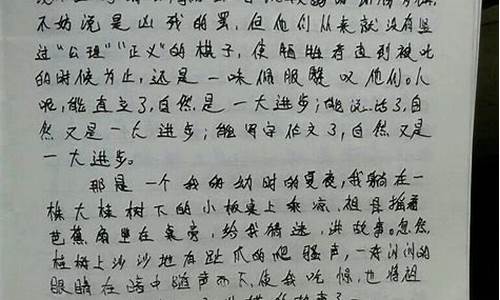 不妨说是凶残的罢,但他们从来就没有竖
过“公理”“正义”的棋子,使牺牲者直到被吃
的时候为止,还是一味佩服赞叹他们。人
呢,能直立了,自然是一大进步;能说话了,自
然又是一大进步;能写字作文了,自然又是
一大进步。
那是一个我的幼时的夏夜,我躺在一
株大桂树下的小板桌上乘凉,祖母摇着
芭蕉扇坐在桌旁,给我猜谜,讲故事。忽然,
桂树上沙沙地有趾爪的爬骚声,一对闪闪的
眼睛在暗中随声而下,使我吃惊,也将祖